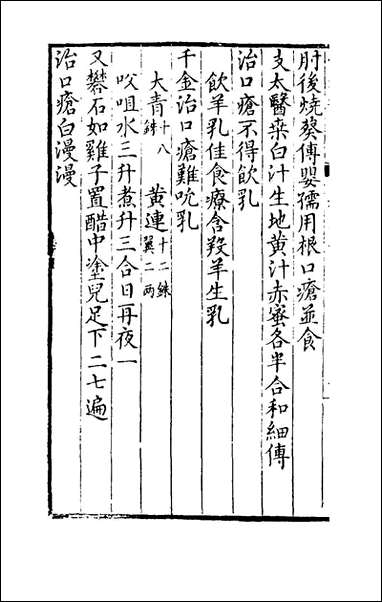 肘後燒葵傅嬰孺用根口瘡並食
支太醫桒白汁生地黄汁赤蜜各半合和細傅
治口瘡不得飲乳
飲羊乳佳食療含羖羊生乳
千金治口瘡難吮乳
大青十八銖 黄連十二銖翼二两
㕮咀水三升煮升三合日再夜一
又礬石如雞子置醋中塗兒足下二七遍
治口瘡白漫漫